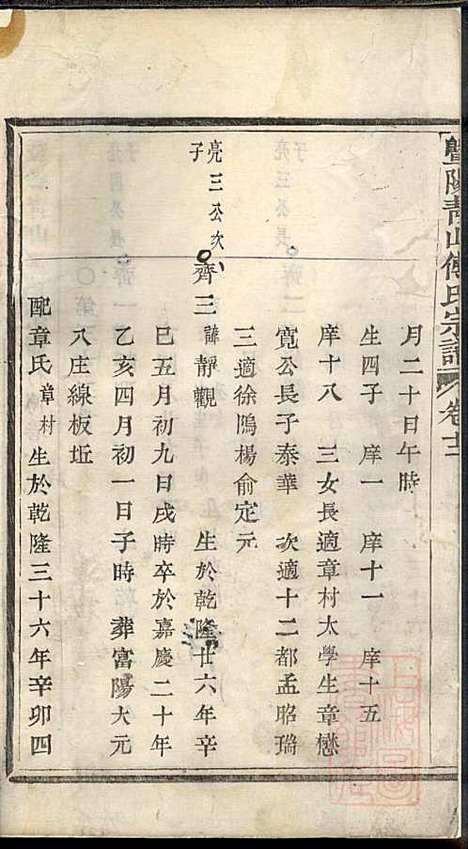 暨陽靑山傅氏宗譜 卷十二
月二十日午時
生四子 庠一 庠十一 庠十五
庠十八 三女長適章村太學生章懋
寬公長子泰華 次適十二都孟昭瑞
三適徐鴡楊俞定元
亮三公次子
齊三 諱靜觀 生於乾隆廿六年辛
巳五月初九日戌時卒於嘉慶二十年
乙亥四月初一日子時 葬富陽大元
八庄線板坵
配章氏章村生於乾隆三十六年辛卯四